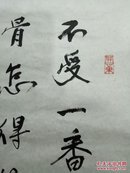 不受一番
骨怎得